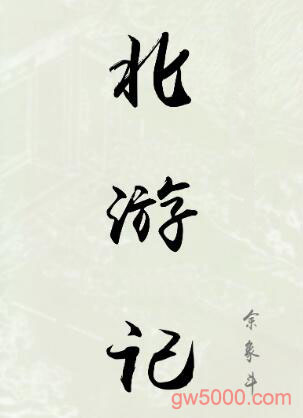 北游记
余象斗
gw5000.com